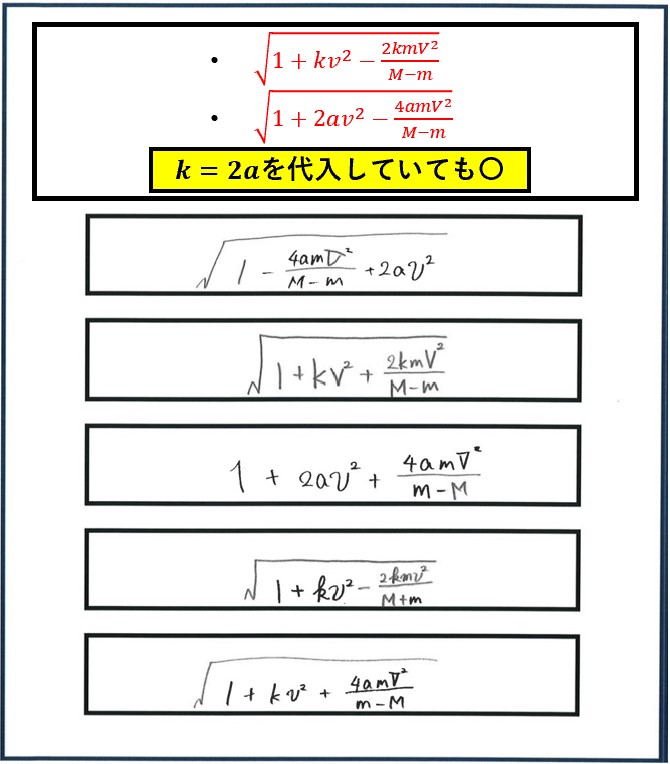 • √(1 + kv² − 2kmV²/(M−m))
• √(1 + 2av² − 4amV²/(M−m))
k = 2aを代入していても〇
√(1 − 4amV²/(M−m) + 2av²)
√(1 + kv² + 2kmV²/(M−m))
1 + 2av² + 4amV²/(m−M)
√(1 + kv² − 2kmv²/(M+m))
√(1 + kv² + 4amV²/(m−M))